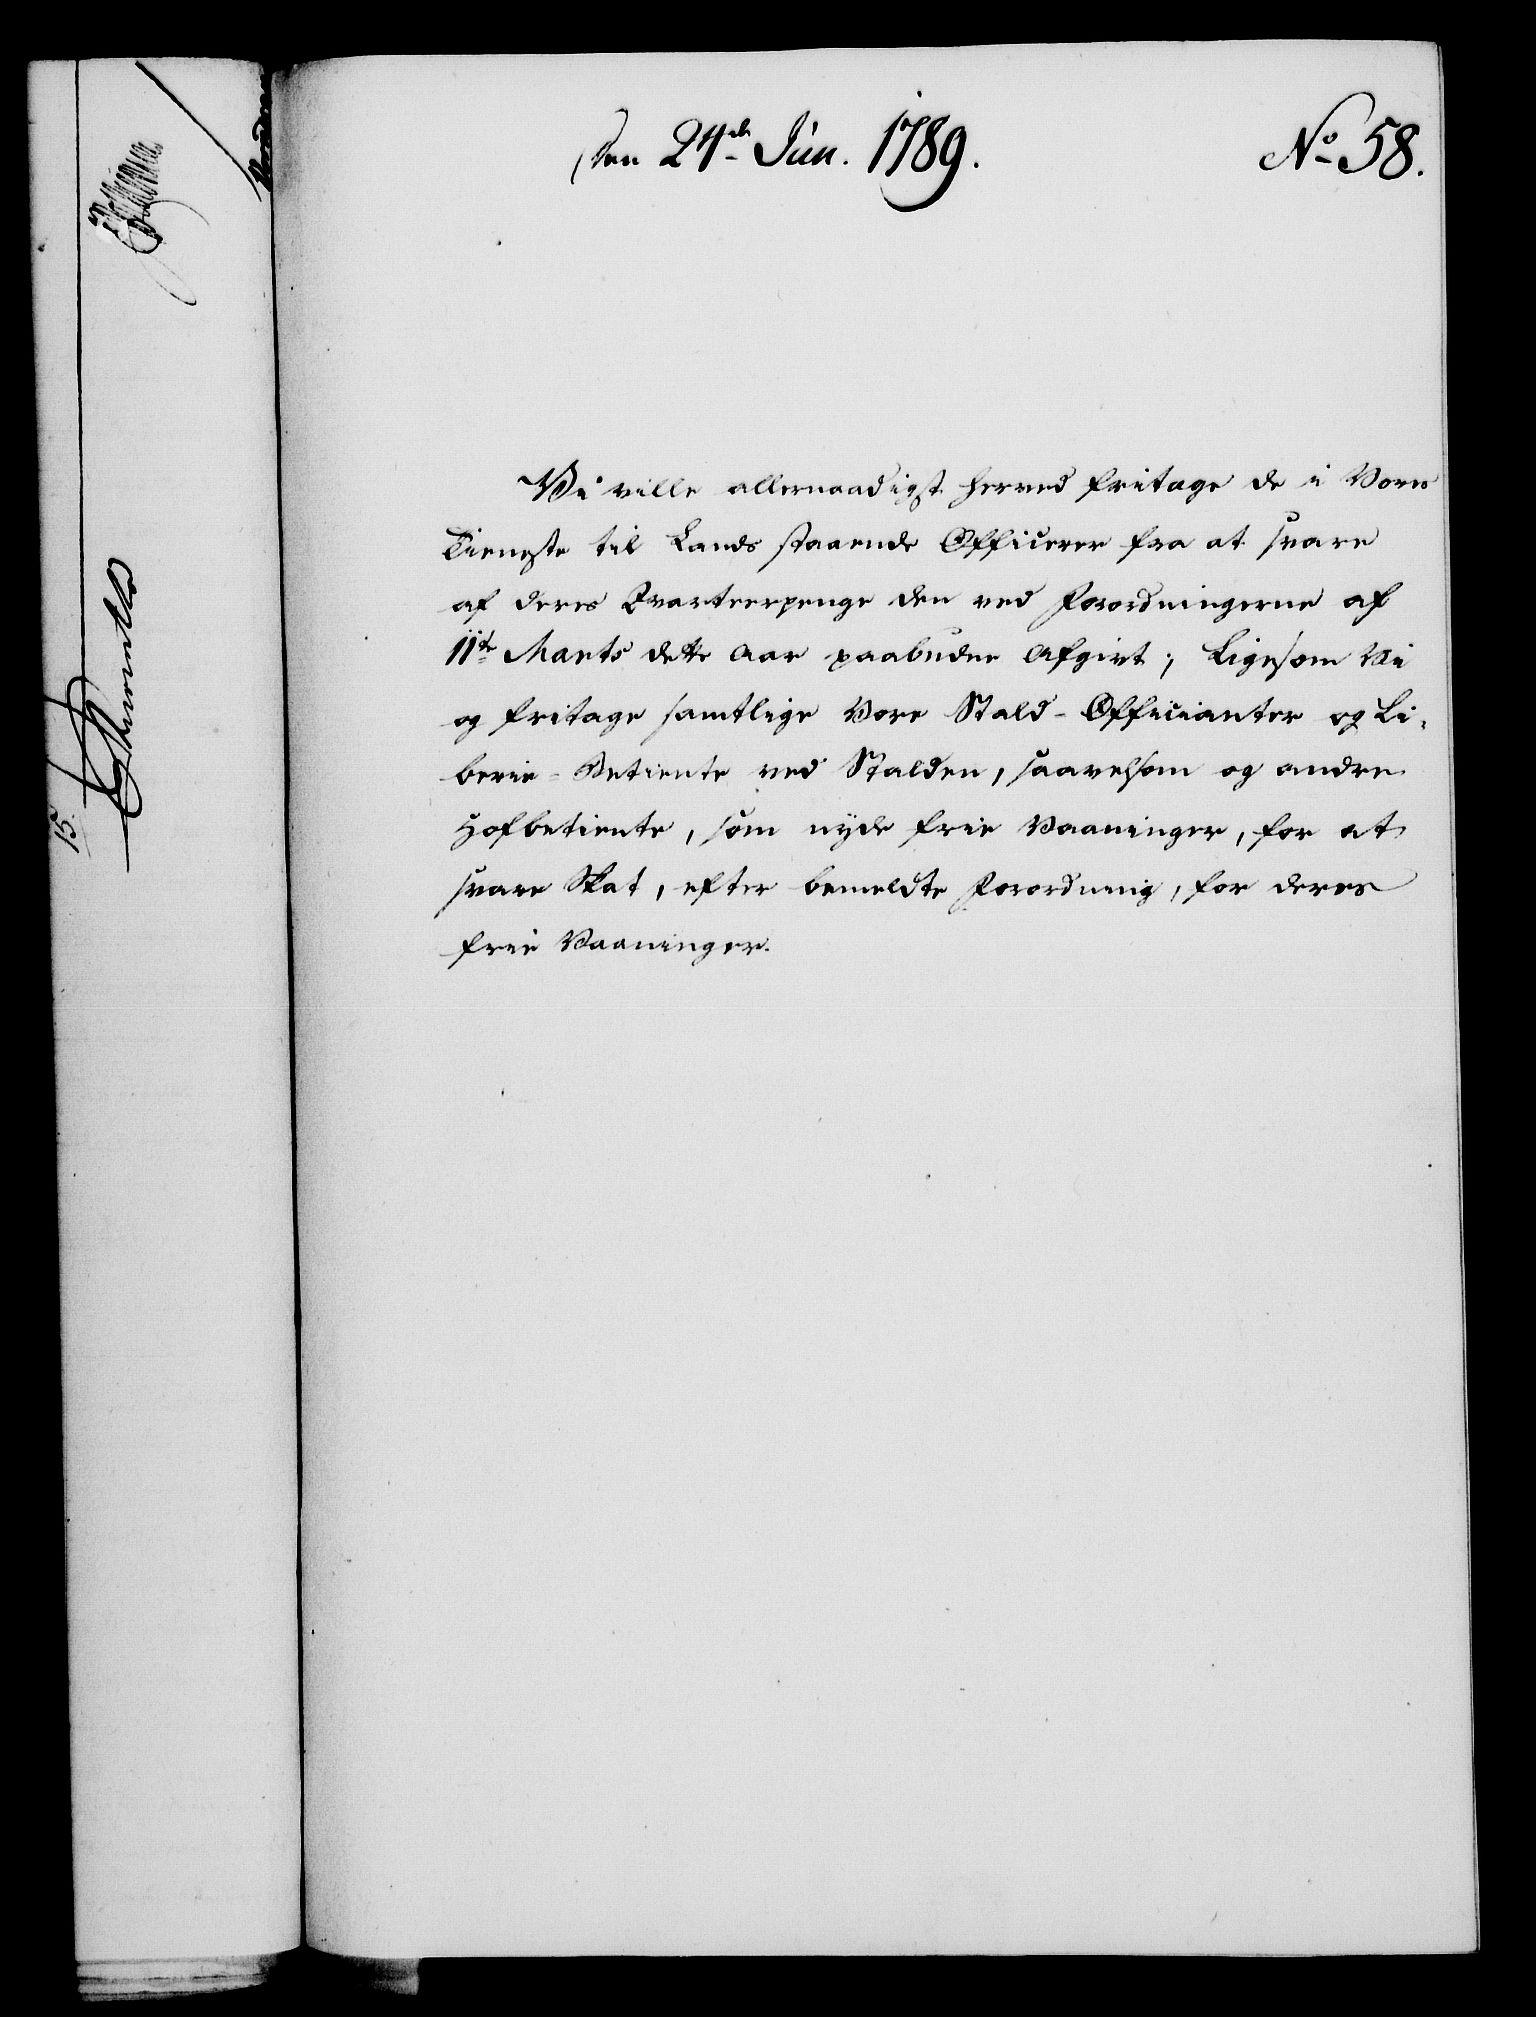 den 24de Jun. 1789.
No 58.
Vi ville allernaadigst herved fritage de i Vores
Tieneste til Lands staaende Officerer fra at svare
af deres Qvarteerpenge den ved Forordningerne af
11te Marts dette Aar paabudne Afgivt; Ligesom Vi
og fritage samtlige Vore Stald-Officianter og Li-
berie-Betiente ved Stalden, saavelsom og andre
Hofbetiente, som nyde frie Vaaninger, for at
svare Skat, efter bemeldte Forordning, for deres
frie Vaaninger.
15.